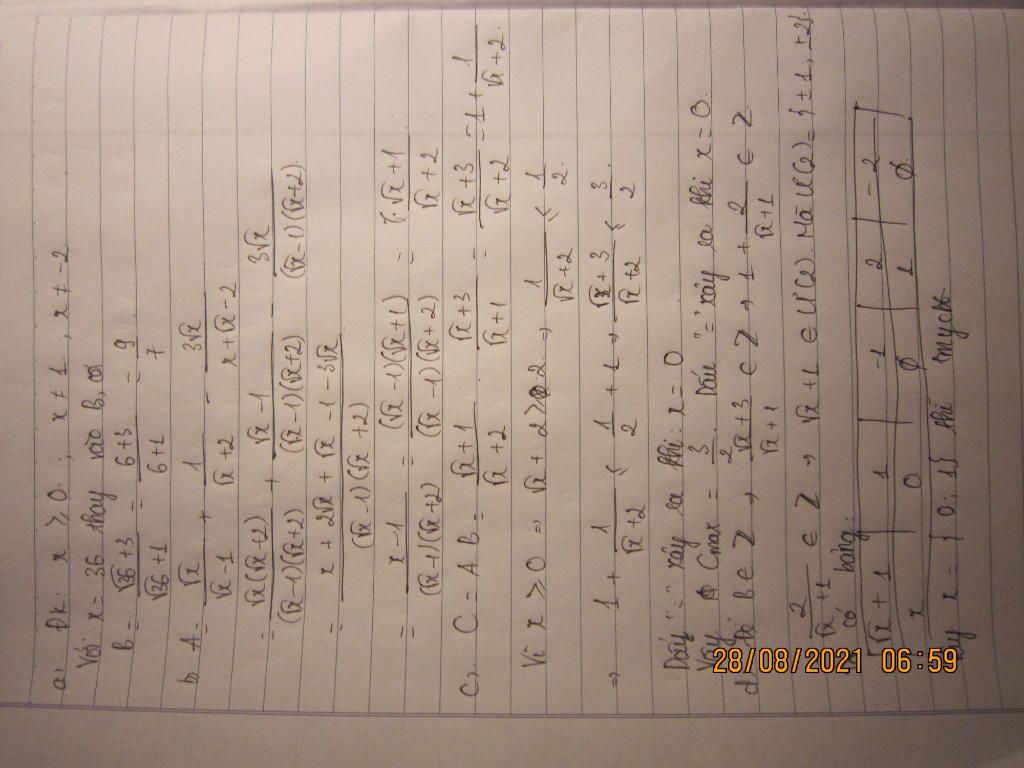 a, Đk: x ≥ 0, x ≠ 1, x ≠ -2
Với x = 36 thay vào B, có
B = √36 + 3 / √36 + 1 = 6+3 / 6+1 = 9 / 7
b, A = √x / √x - 1 + 1 / √x + 2 - 3√x / x + √x - 2
= √x(√x+2) / (√x-1)(√x+2) + √x - 1 / (√x-1)(√x+2) - 3√x / (√x-1)(√x+2).
= x + 2√x + √x - 1 - 3√x / (√x-1)(√x+2)
= x - 1 / (√x+1)(√x+2) = (√x-1)(√x+1) / (√x-1)(√x+2) = √x + 1 / √x + 2
C, C = A.B = √x + 1 / √x + 2 . √x + 3 / √x + 1 = √x + 3 / √x + 2 = 1 + 1 / √x + 2.
Vì x ≥ 0 ⇒ √x + 2 ≥ 2 ⇒ 1 / √x + 2 ≤ 1 / 2.
⇒ 1 + 1 / √x + 2 ≤ 1 / 2 + 1 → √x + 3 / √x + 2 ≤ 3 / 2
Dấu "=" xảy ra khi: x = 0
Vậy Cmax = 3 / 2 Dấu "=" xảy ra khi x = 0.
d, Để B ∈ Z → √x + 3 / √x + 1 ∈ Z → 1 + 2 / √x + 1 ∈ Z
2 / √x + 1 ∈ Z → √x + 1 ∈ Ư(2). Mà Ư(2) = {±1, ±2}.
có bảng:
√x + 1 | 1 | -1 | 2 | -2
x | 0 | ∅ | 1 | ∅
Vậy x = {0; 1} thì
28/08/2021 06:59